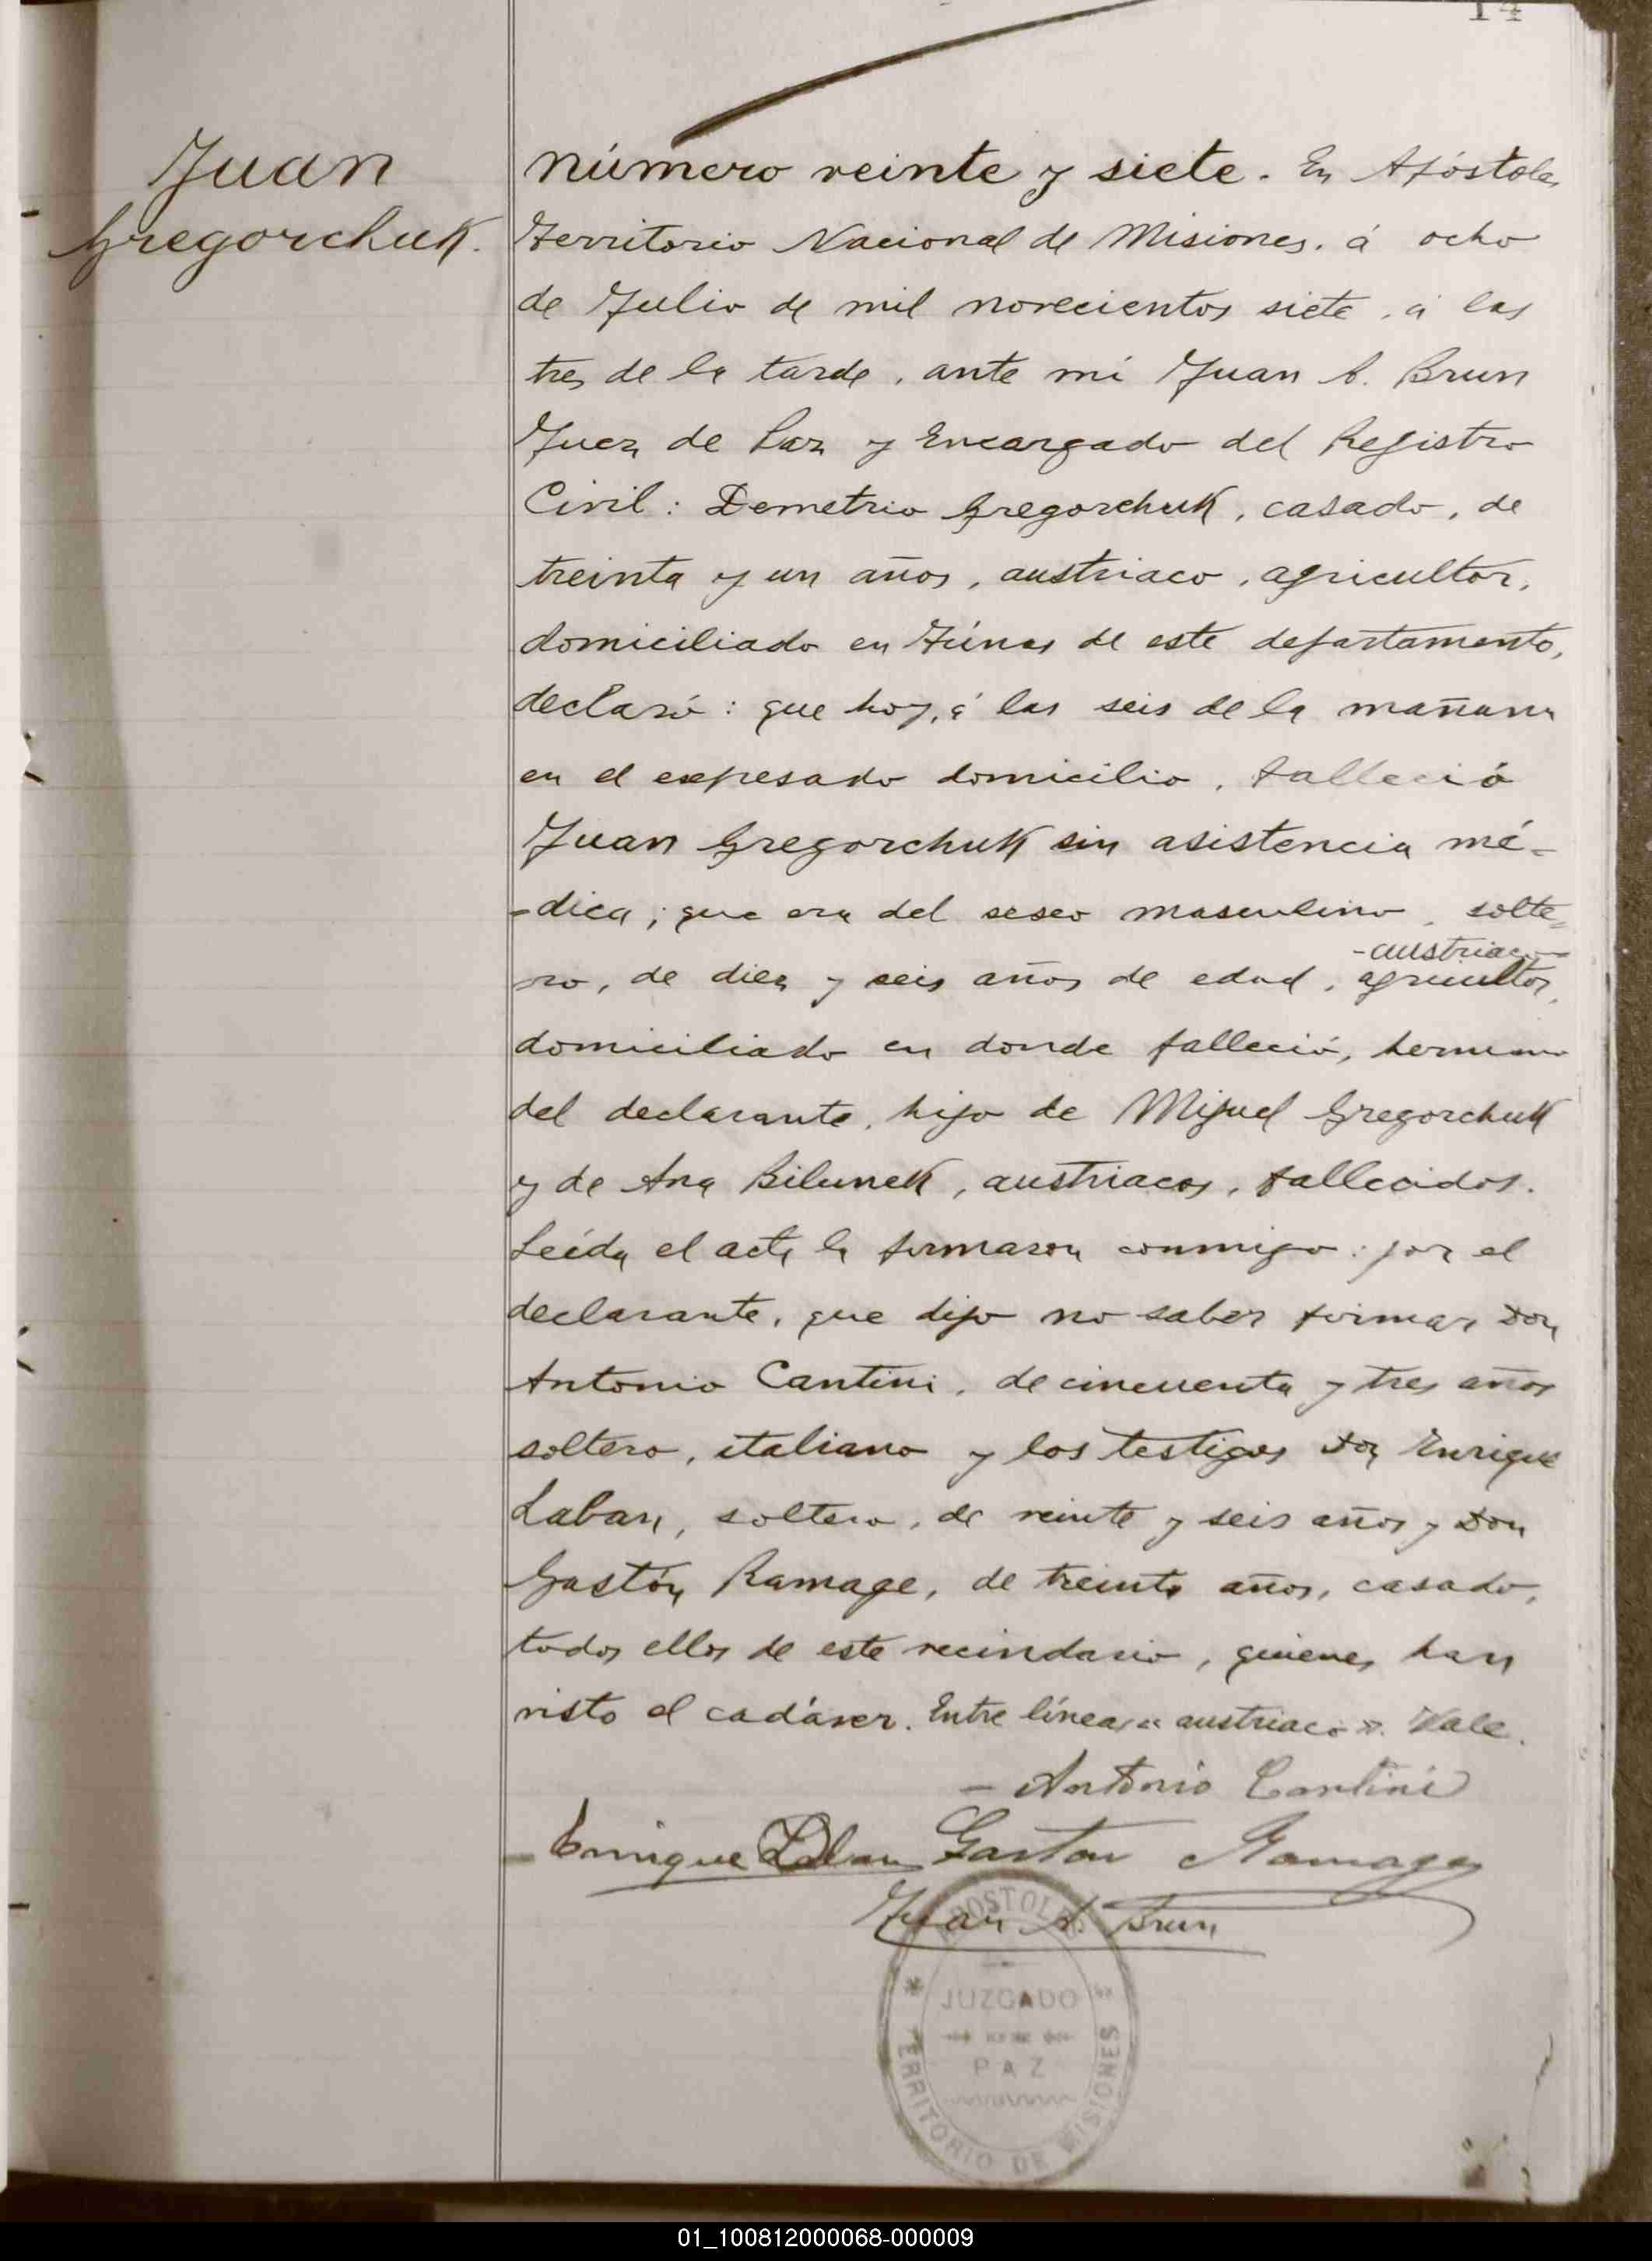 14
Juan
Gregorchuk.
Número veinte y siete. En Apóstoles
Territorio Nacional de Misiones. á ocho
de Julio de mil novecientos siete, á las
tres de la tarde, ante mí Juan A. Brun
Juez de Paz y Encargado del Registro
Civil: Demetrio Gregorchuk, casado, de
treinta y un años, austriaco, agricultor,
domiciliado en Túnas de este departamento,
declaró: que hoy, á las seis de la mañana
en el expesado domicilio, falleció
Juan Gregorchuk sin asistencia mé-
-dica; que era del sexo masculino, solte-
-austriaco-
ro, de diez y seis años de edad, agricultor,
domiciliado en donde falleció, hermano
del declarante, hijo de Miguel Gregorchuk
y de Ana Bilunek, austriacos, fallecidos.
Leída el acta la firmaron conmigo: por el
declarante, que dijo no saber firmar Don
Antonio Cantini, de cincuenta y tres años
soltero, italiano y los testigos Don Enrique
Laban, soltero, de veinte y seis años y Don
Gastón Ramage, de treinta años, casado,
todos ellos de este vecindario, quienes han
visto el cadáver. Entre líneas "austriaco". Vale.
- Antonio Cantini
Enrique Laban Gaston Ramage
Juan A. Brun
APOSTOLES
JUZGADO
PAZ
TERRITORIO DE MISIONES
01_100812000068-000009